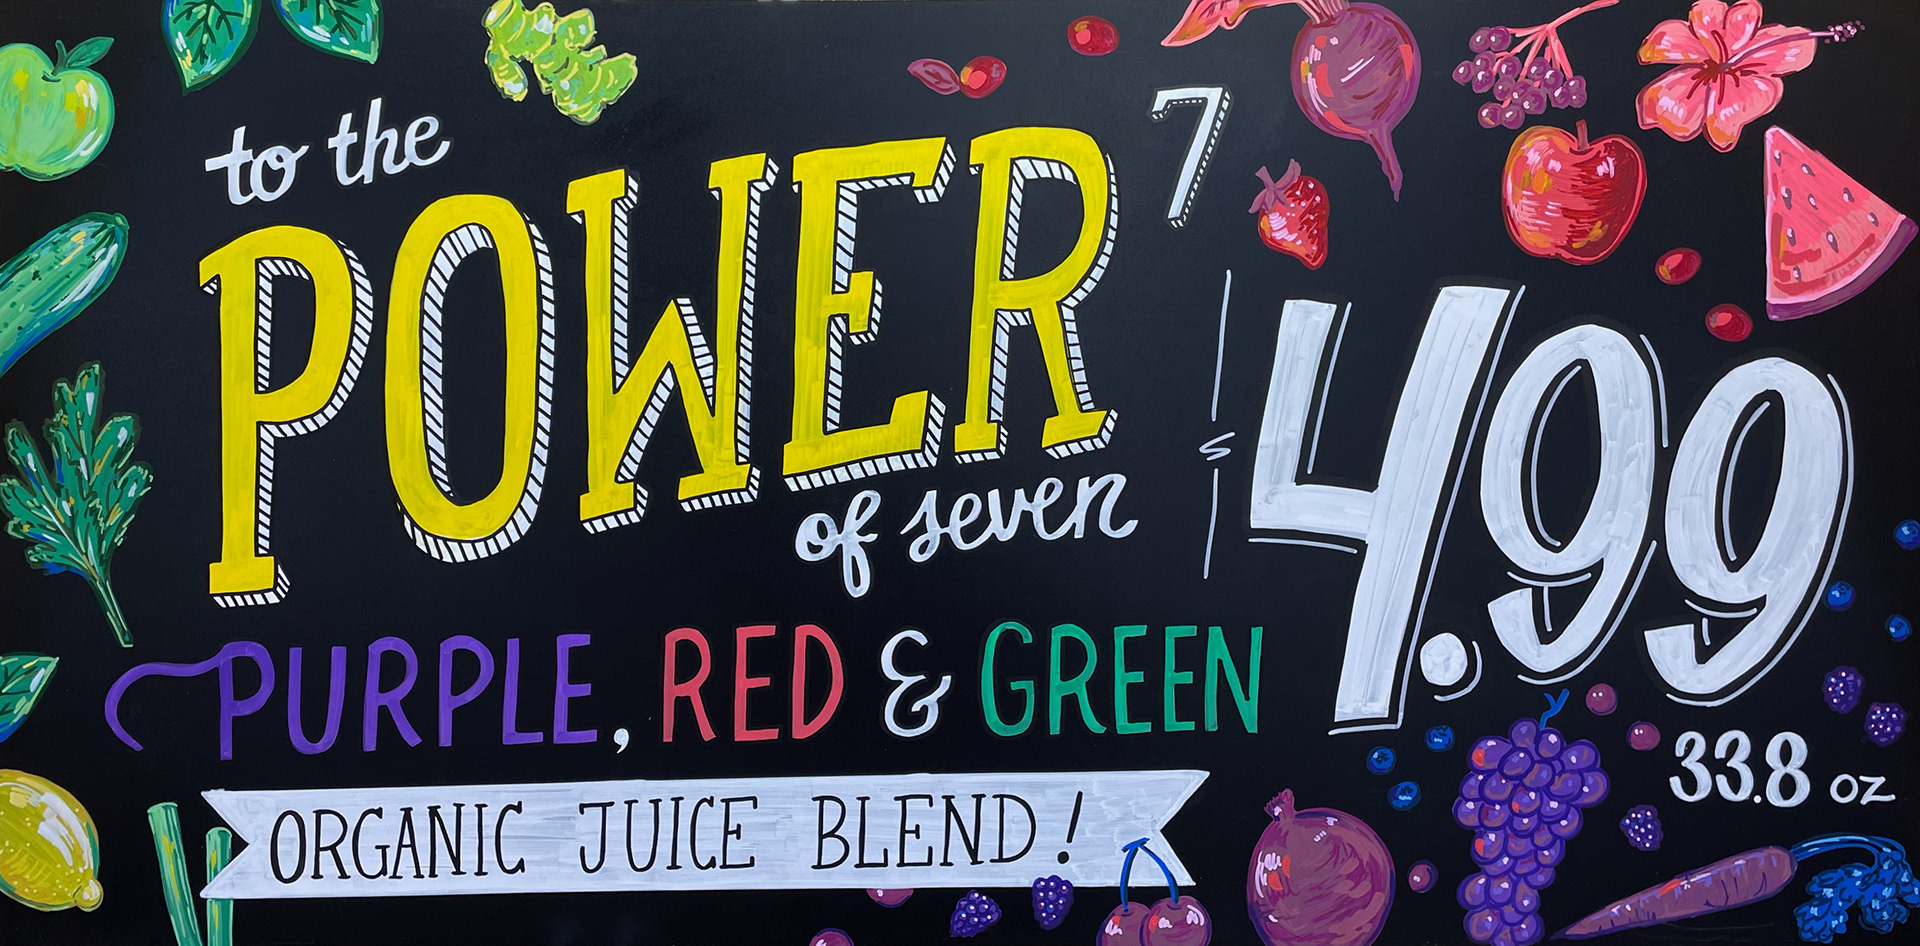 to the
POWER
7
of seven
$4.99
PURPLE, RED & GREEN
33.8 oz
ORGANIC JUICE BLEND!